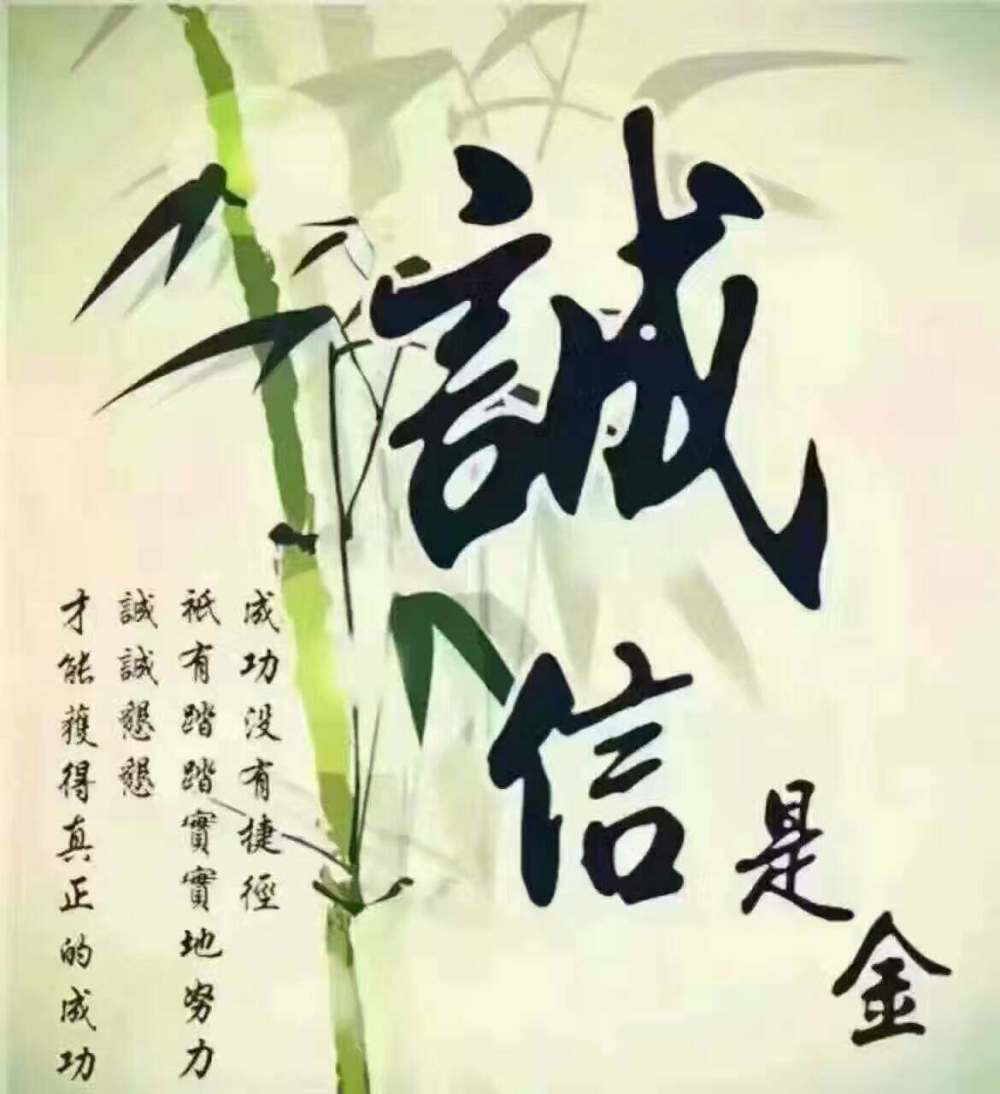 誠信是金
成功没有捷徑
祇有踏踏實實地努力
誠誠懇懇
才能獲得真正的成功